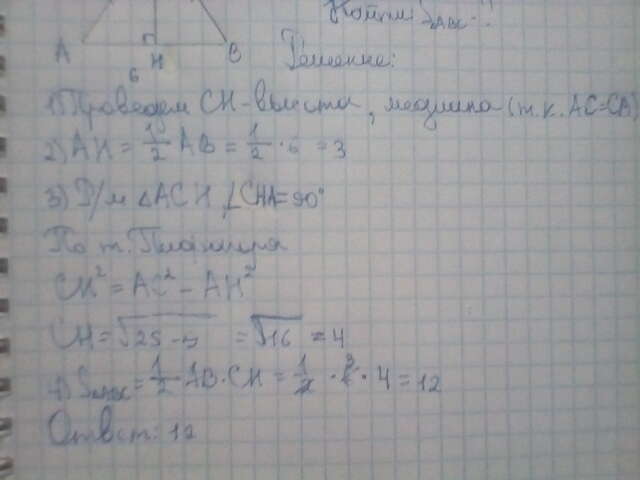 Найти: S ABC - ?
A H B
6
Решение:
1) Проведем CH - высота, медиана (т.к. AC=CB)
2) AH = 1/2 AB = 1/2 · 6 = 3
3) Р/м △ACH, ∠CHA = 90°
По т. Пифагора
CH² = AC² - AH²
CH = √25 - 9 = √16 = 4
4) S ABC = 1/2 AB · CH = 1/2 · 6 3 · 4 = 12
Ответ: 12